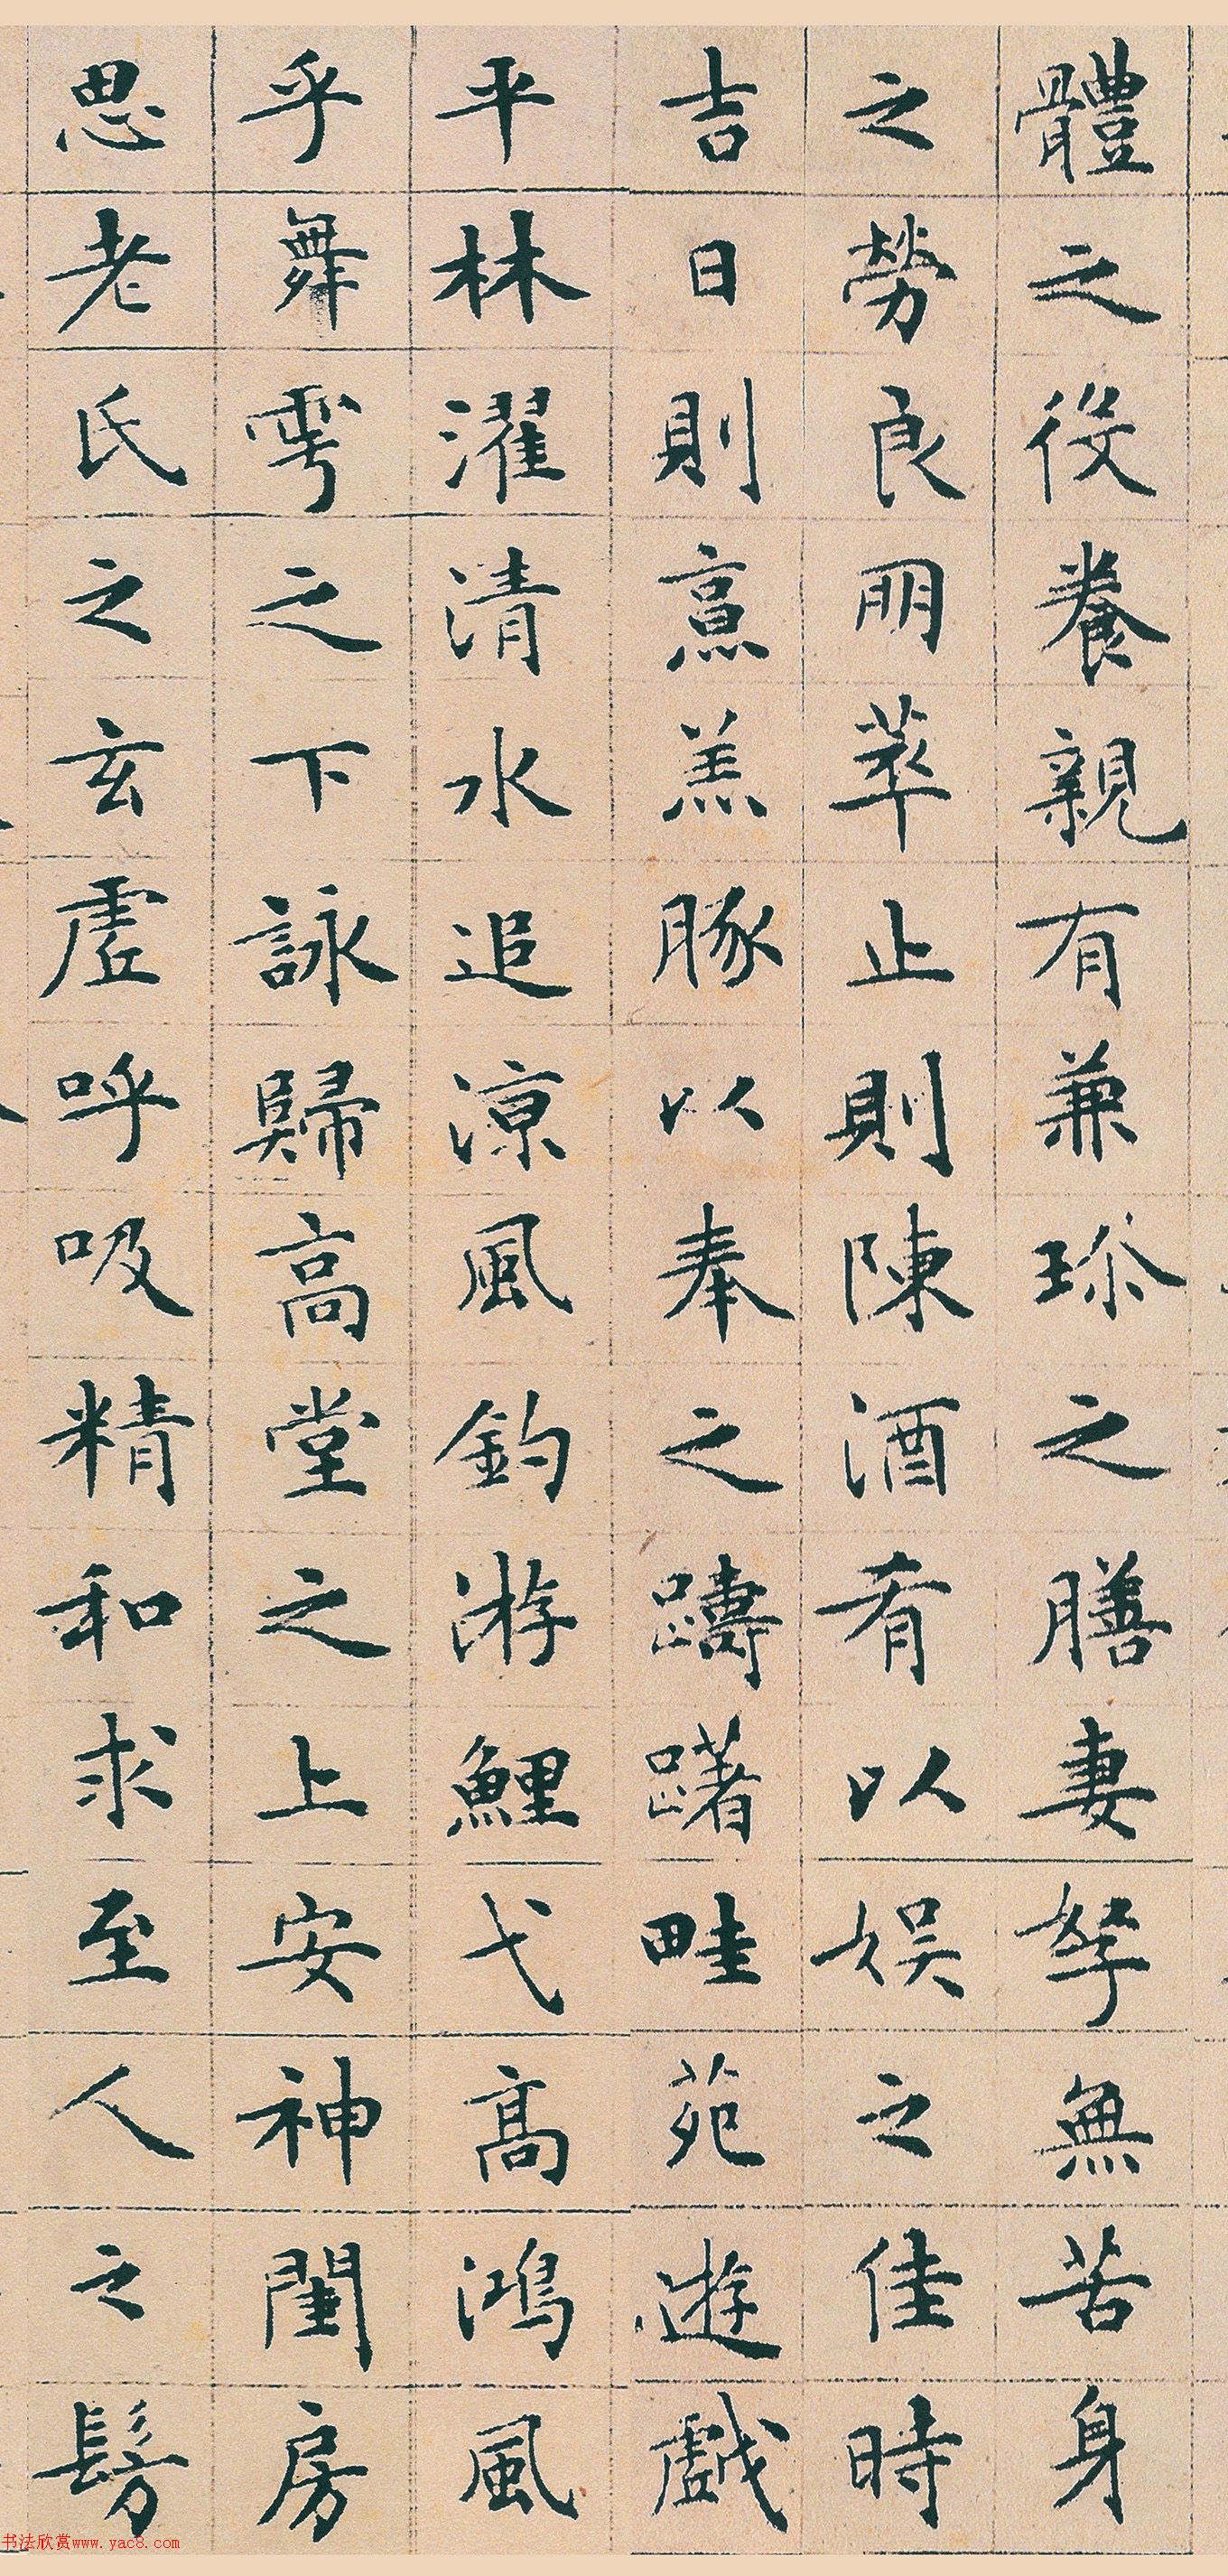 體之役養親有兼珎之膳妻孥無苦身
之勞良朋萃止則陳酒肴以娛之佳時
吉日則烹羔豚以奉之躊躇畦苑遊戲
平林濯清水追涼風釣游鯉弋高鴻風
乎舞雩之下詠歸高堂之上安神閨房
思老氏之玄虛呼吸精和求至人之髣
书法欣赏www.yac8.com